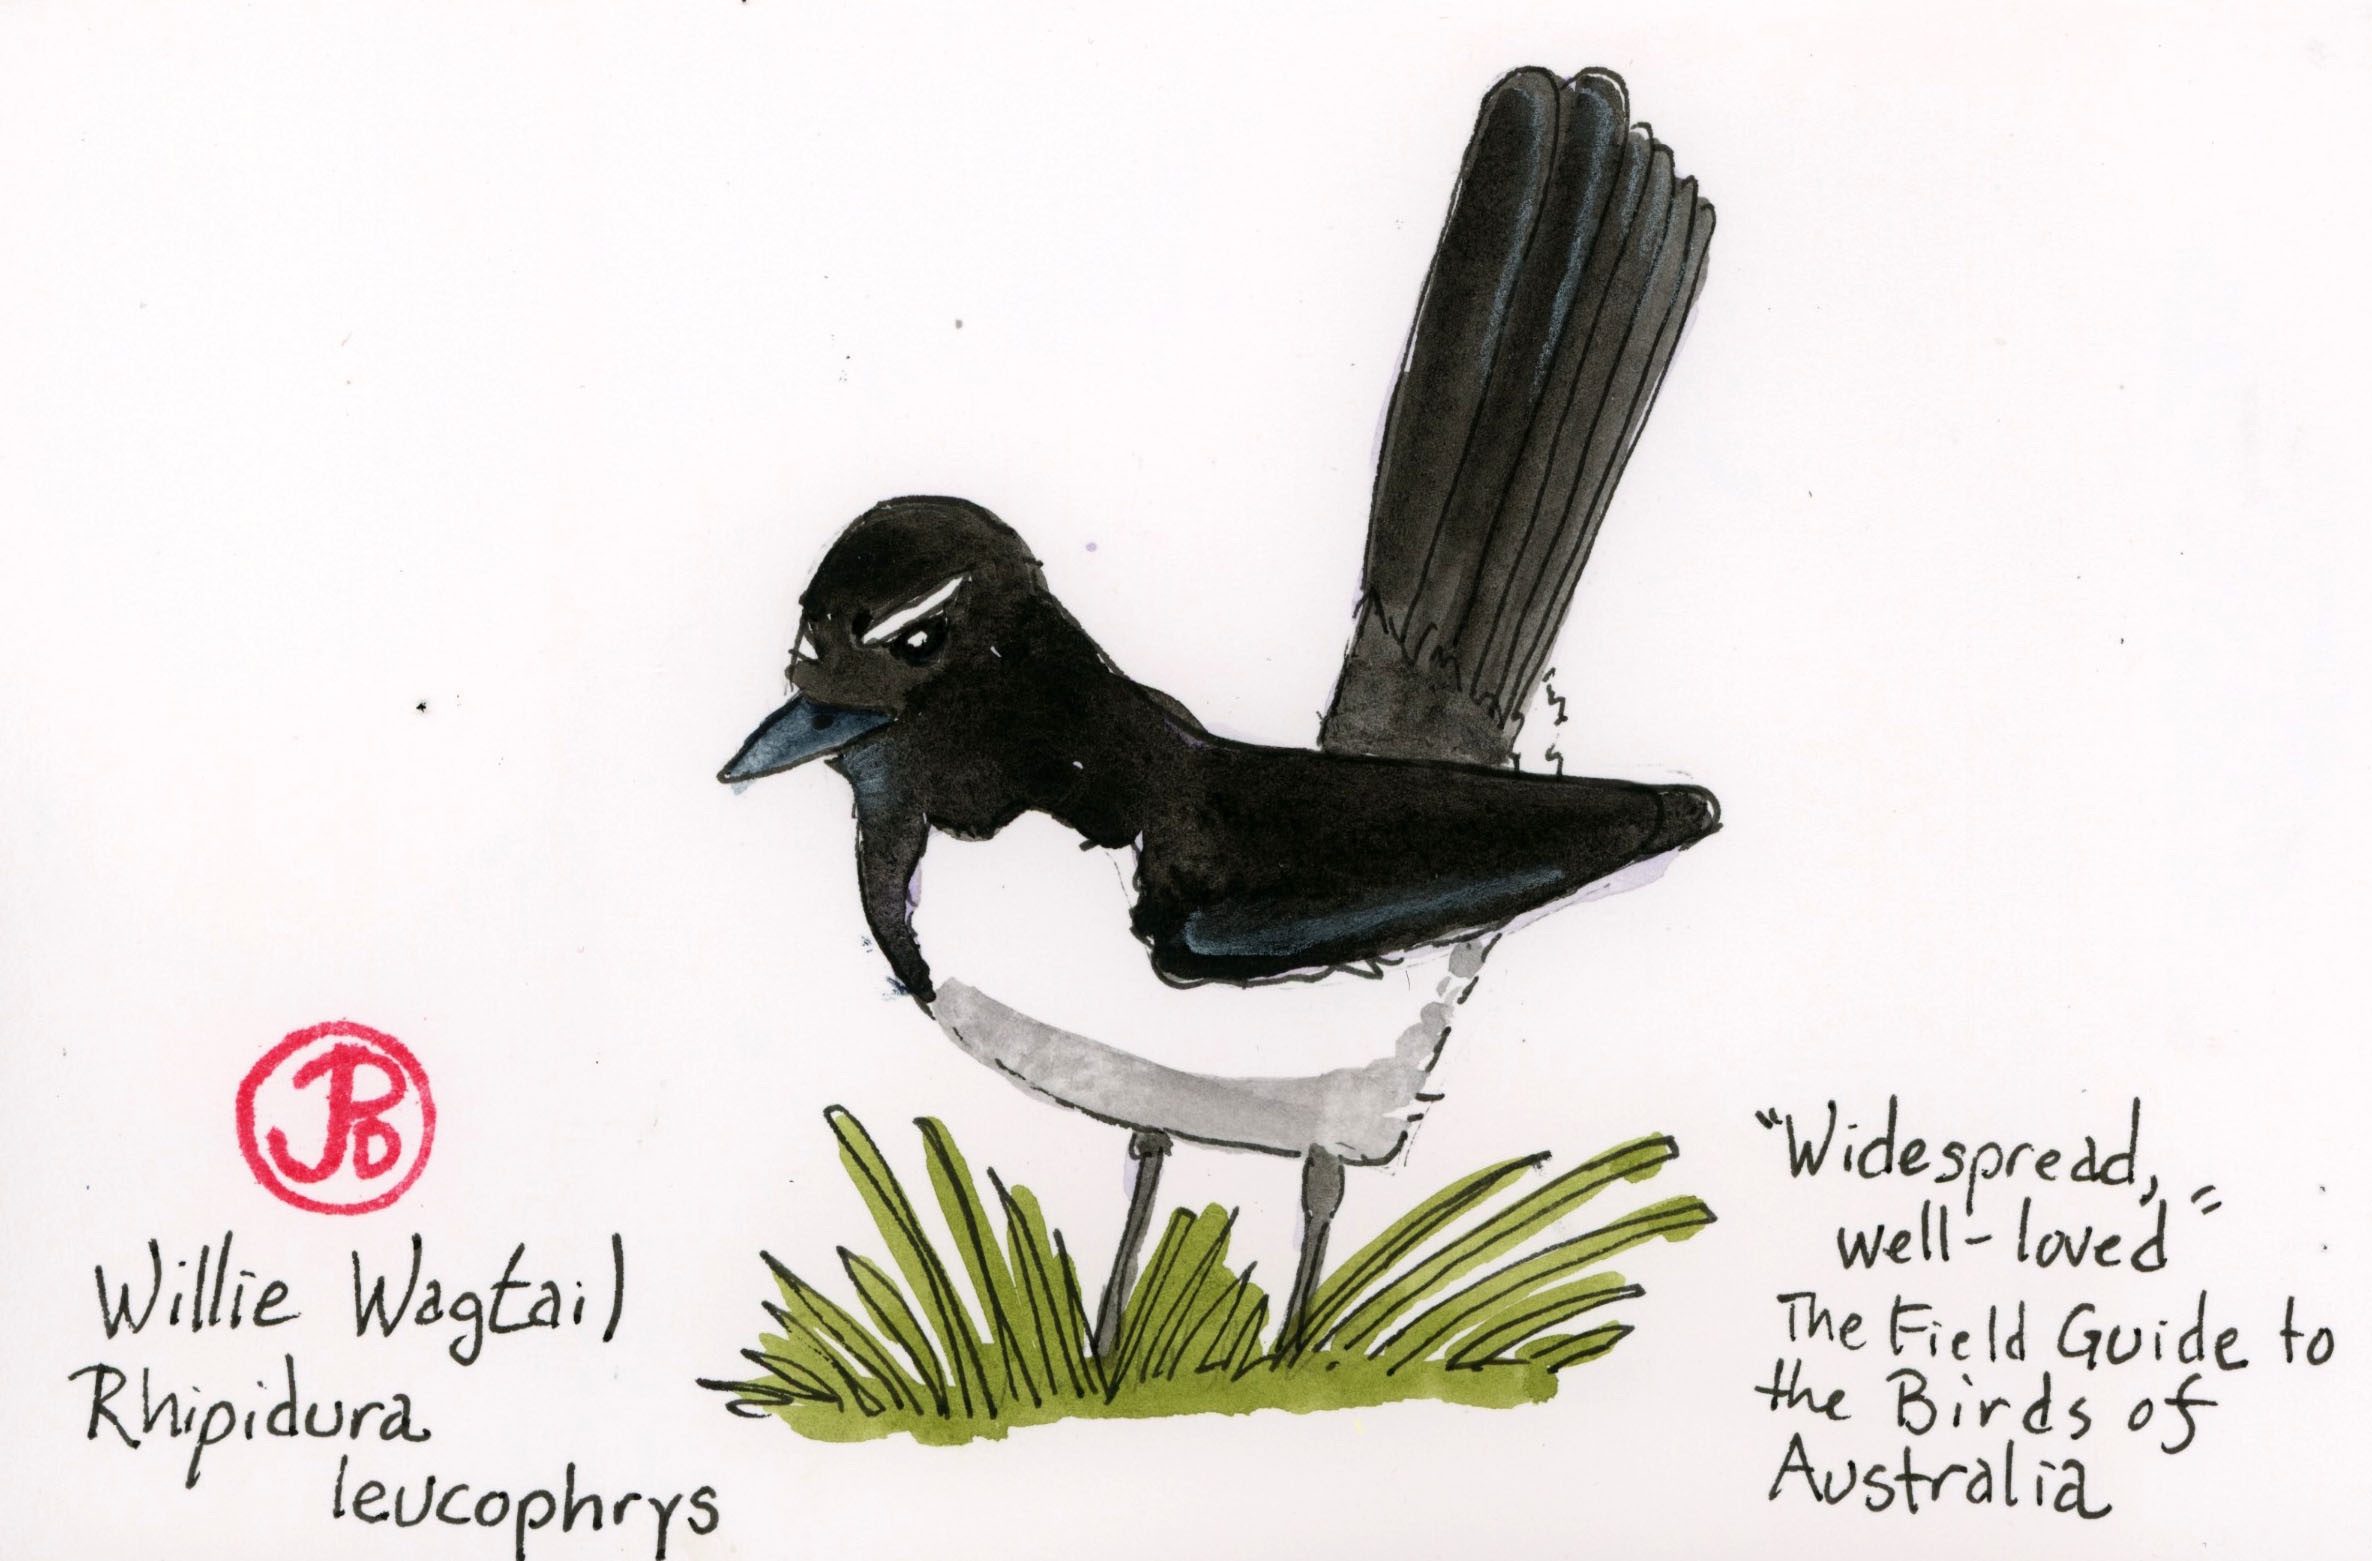 JPD
Willie Wagtail
Rhipidura
leucophrys
"Widespread,
well-loved"
The Field Guide to
the Birds of
Australia